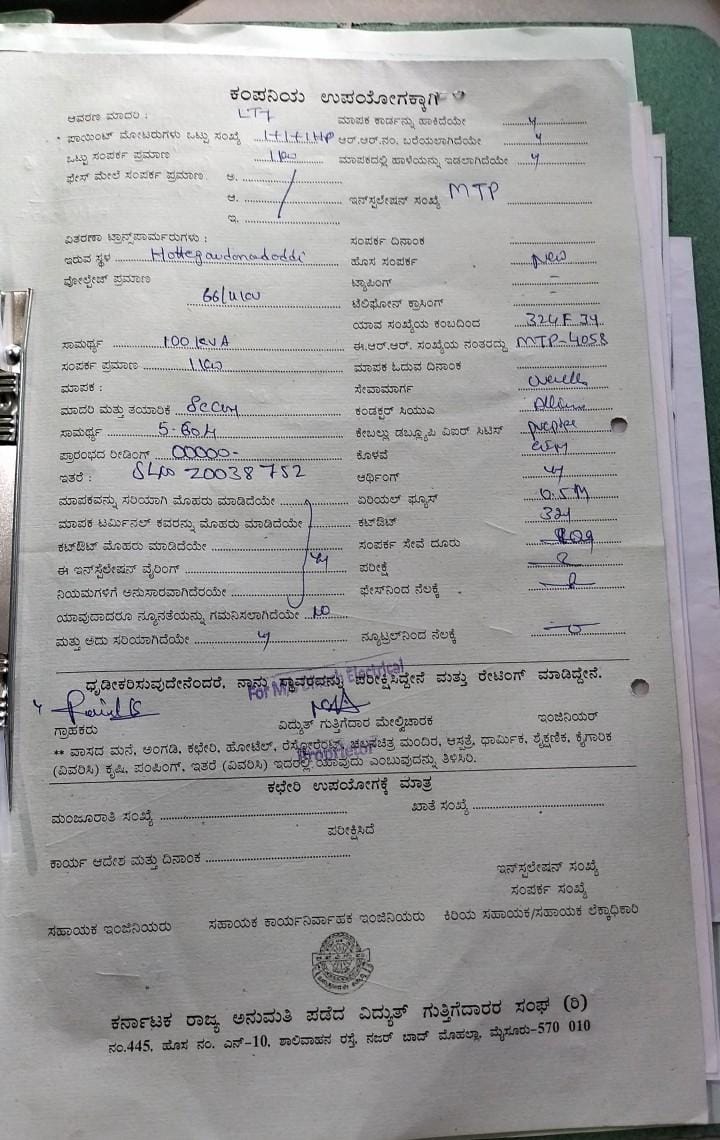 ಕಂಪನಿಯ ಉಪಯೋಗಕ್ಕಾಗಿ
ಆವರಣ ಮಾದರಿ : LT7
ಮಾಪಕ ಕಾರ್ಡನ್ನು ಹಾಕಿದೆಯೇ y
ಪಾಯಿಂಟ್ ಮೋಟರುಗಳು ಒಟ್ಟು ಸಂಖ್ಯೆ 1+1+1HP
ಆರ್.ಆರ್.ನಂ. ಬರೆಯಲಾಗಿದೆಯೇ y
ಒಟ್ಟು ಸಂಪರ್ಕ ಪ್ರಮಾಣ 1kw
ಮಾಪಕದಲ್ಲಿ ಹಾಳೆಯನ್ನು ಇಡಲಾಗಿದೆಯೇ y
ಫೇಸ್ ಮೇಲೆ ಸಂಪರ್ಕ ಪ್ರಮಾಣ. ಅ.
ಆ.
ಇನ್‌ಸ್ಟಲೇಷನ್ ಸಂಖ್ಯೆ MTP
ಇ.
ವಿತರಣಾ ಟ್ರಾನ್ಸ್‌ಪಾರ್ಮರುಗಳು :
ಸಂಪರ್ಕ ದಿನಾಂಕ
ಇರುವ ಸ್ಥಳ Hottegoudanadoddi
ಹೊಸ ಸಂಪರ್ಕ New
ವೋಲ್ಟೇಜ್ ಪ್ರಮಾಣ
ಟ್ಯಾಪಿಂಗ್ -
66/11kv
ಟೆಲಿಫೋನ್ ಕ್ರಾಸಿಂಗ್ -
ಯಾವ ಸಂಖ್ಯೆಯ ಕಂಬದಿಂದ
ಸಾಮರ್ಥ್ಯ 100 kVA
ಈ.ಆರ್.ಆರ್. ಸಂಖ್ಯೆಯ ನಂತರದ್ದು MTP-4058
ಸಂಪರ್ಕ ಪ್ರಮಾಣ 1kw
ಮಾಪಕ ಓದುವ ದಿನಾಂಕ
ಮಾಪಕ :
ಸೇವಾಮಾರ್ಗ
ಮಾದರಿ ಮತ್ತು ತಯಾರಿಕೆ
ಕಂಡಕ್ಟರ್ ಸಿಯುಎ
ಸಾಮರ್ಥ್ಯ
ಕೇಬಲ್ಲು ಡಬ್ಲ್ಯೂಪಿ ವಿಐರ್ ಸಿಟಿಸ್
ಪ್ರಾರಂಭದ ರೀಡಿಂಗ್ 00000-
ಕೊಳವೆ
ಇತರೆ : 20038752
ಆರ್ಥಿಂಗ್ y
ಮಾಪಕವನ್ನು ಸರಿಯಾಗಿ ಮೊಹರು ಮಾಡಿದೆಯೇ
ಏರಿಯಲ್ ಫ್ಯೂಸ್ 0.5M
ಮಾಪಕ ಟರ್ಮಿನಲ್ ಕವರನ್ನು ಮೊಹರು ಮಾಡಿದೆಯೇ
ಕಟ್‌ಔಟ್ 324
ಕಟ್‌ಔಟ್ ಮೊಹರು ಮಾಡಿದೆಯೇ
ಸಂಪರ್ಕ ಸೇವೆ ದೂರು
ಈ ಇನ್‌ಸ್ಟೆಲೇಷನ್ ವೈರಿಂಗ್ y
ಪರೀಕ್ಷೆ
ನಿಯಮಗಳಿಗೆ ಅನುಸಾರವಾಗಿದೆಯೇ
ಫೇಸ್‌ನಿಂದ ನೆಲಕ್ಕೆ
ಯಾವುದಾದರೂ ನ್ಯೂನತೆಯನ್ನು ಗಮನಿಸಲಾಗಿದೆಯೇ NO
ಮತ್ತು ಅದು ಸರಿಯಾಗಿದೆಯೇ y
ನ್ಯೂಟ್ರಲ್‌ನಿಂದ ನೆಲಕ್ಕೆ
ಧೃಡೀಕರಿಸುವುದೇನೆಂದರೆ, ನಾನು ಸ್ಥಾವರವನ್ನು ಪರೀಕ್ಷಿಸಿದ್ದೇನೆ ಮತ್ತು ರೇಟಿಂಗ್ ಮಾಡಿದ್ದೇನೆ.
Electrical
ಗ್ರಾಹಕರು
ವಿದ್ಯುತ್ ಗುತ್ತಿಗೆದಾರ ಮೇಲ್ವಿಚಾರಕ
ಇಂಜಿನಿಯರ್
Proprietor
** ವಾಸದ ಮನೆ, ಅಂಗಡಿ, ಕಛೇರಿ, ಹೋಟೆಲ್, ರೆಸ್ಟೋರೆಂಟ್, ಚಲನಚಿತ್ರ ಮಂದಿರ, ಆಸ್ಪತ್ರೆ, ಧಾರ್ಮಿಕ, ಶೈಕ್ಷಣಿಕ, ಕೈಗಾರಿಕ
(ವಿವರಿಸಿ) ಕೃಷಿ, ಪಂಪಿಂಗ್, ಇತರೆ (ವಿವರಿಸಿ) ಇದರಲ್ಲಿ ಯಾವುದು ಎಂಬುವುದನ್ನು ತಿಳಿಸಿರಿ.
ಕಛೇರಿ ಉಪಯೋಗಕ್ಕೆ ಮಾತ್ರ
ಮಂಜೂರಾತಿ ಸಂಖ್ಯೆ
ಖಾತೆ ಸಂಖ್ಯೆ
ಪರೀಕ್ಷಿಸಿದೆ
ಕಾರ್ಯ ಆದೇಶ ಮತ್ತು ದಿನಾಂಕ
ಇನ್‌ಸ್ಟಲೇಷನ್ ಸಂಖ್ಯೆ
ಸಂಪರ್ಕ ಸಂಖ್ಯೆ
ಸಹಾಯಕ ಇಂಜಿನಿಯರು
ಸಹಾಯಕ ಕಾರ್ಯನಿರ್ವಾಹಕ ಇಂಜಿನಿಯರು
ಕಿರಿಯ ಸಹಾಯಕ/ಸಹಾಯಕ ಲೆಕ್ಕಾಧಿಕಾರಿ
ಕರ್ನಾಟಕ ರಾಜ್ಯ ಅನುಮತಿ ಪಡೆದ ವಿದ್ಯುತ್ ಗುತ್ತಿಗೆದಾರರ ಸಂಘ (ರಿ)
ನಂ.445, ಹೊಸ ನಂ. ಎನ್-10, ಶಾಲಿವಾಹನ ರಸ್ತೆ, ನಜರ್ ಬಾದ್ ಮೊಹಲ್ಲಾ, ಮೈಸೂರು-570 010